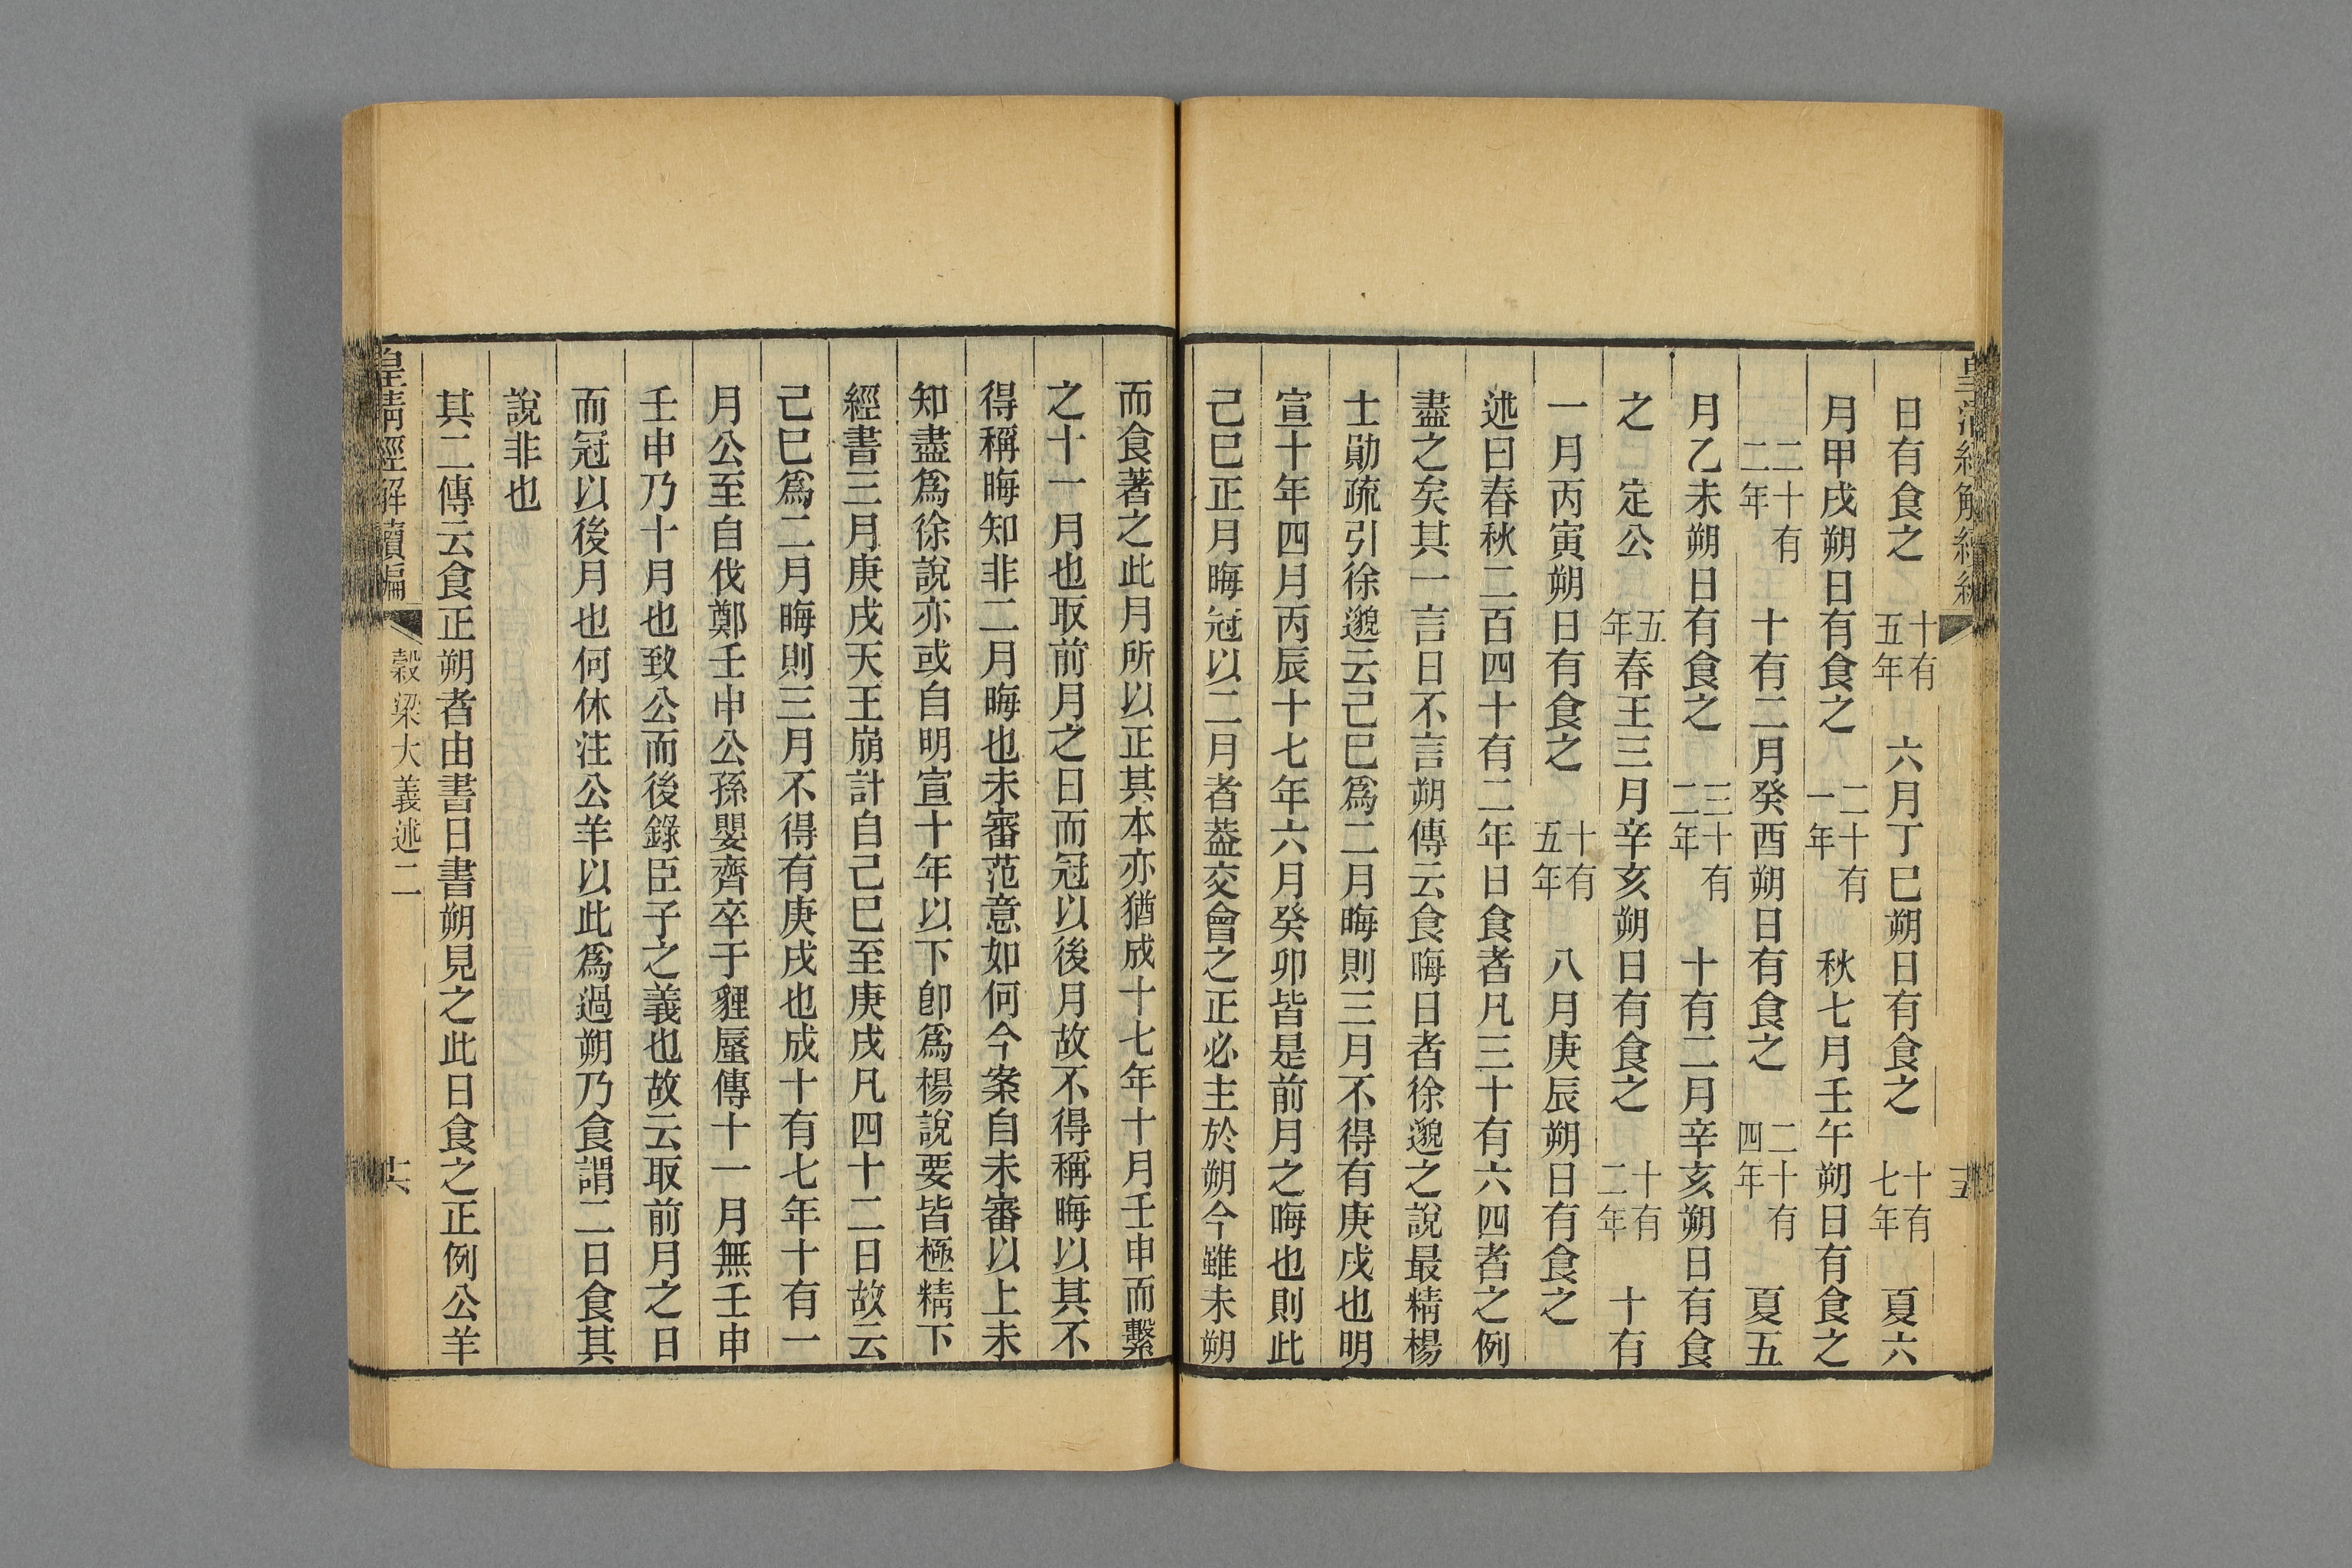 日有食之 十有五年 六月丁巳朔日有食之 十有七年 夏六
月甲戌朔日有食之 二十有一年 秋七月壬午朔日有食之
二十有二年 十有二月癸酉朔日有食之 二十有四年 夏五
月乙未朔日有食之 三十有二年 十有二月辛亥朔日有食
之 定公 五年 春王三月辛亥朔日有食之 十有二年 十有
一月丙寅朔日有食之 十有五年 八月庚辰朔日有食之
述曰春秋二百四十有二年日食者凡三十有六四者之例
盡之矣其一言日不言朔傳云食晦日者徐邈之說最精楊
士勛疏引徐邈云己巳爲二月晦則三月不得有庚戌也明
宣十年四月丙辰十七年六月癸卯皆是前月之晦也則此
己巳正月晦冠以二月者葢交會之正必主於朔今雖未朔
而食著之此月所以正其本亦猶成十七年十月壬申而繫
之十一月也取前月之日而冠以後月故不得稱晦以其不
得稱晦知非二月晦也未審范意如何今案自未審以上未
知盡爲徐說亦或自明宣十年以下卽爲楊說要皆極精下
經書三月庚戌天王崩計自己巳至庚戌凡四十二日故云
己巳爲二月晦則三月不得有庚戌也成十有七年十有一
月公至自伐鄭壬申公孫嬰齊卒于貍蜃傳十一月無壬申
壬申乃十月也致公而後錄臣子之義也故云取前月之日
而冠以後月也何休注公羊以此爲過朔乃食謂二日食其
說非也
其二傳云食正朔者由書日書朔見之此日食之正例公羊
皇淸經解續編 穀梁大義述二 十六